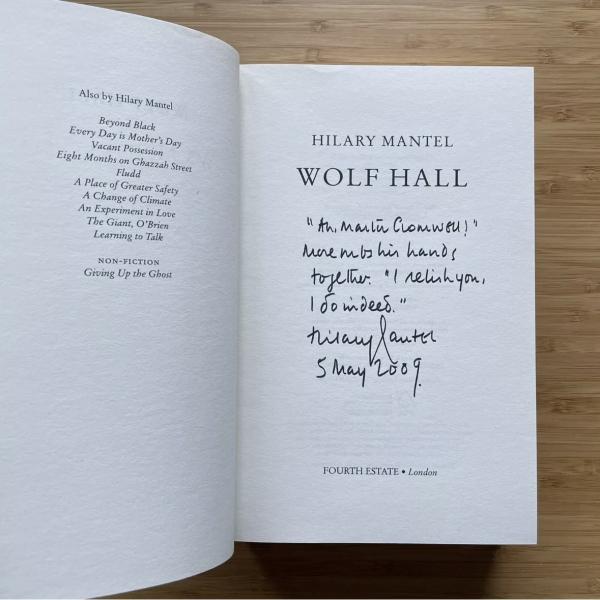 Also by Hilary Mantel
Beyond Black
Every Day is Mother's Day
Vacant Possession
Eight Months on Ghazzah Street
Fludd
A Place of Greater Safety
A Change of Climate
An Experiment in Love
The Giant, O'Brien
Learning to Talk
NON-FICTION
Giving Up the Ghost
HILARY MANTEL
WOLF HALL
"Ah, Master Cromwell!"
More rubs his hands
together. "I relish you,
I do indeed."
Hilary Mantel
5 May 2009.
FOURTH ESTATE • London